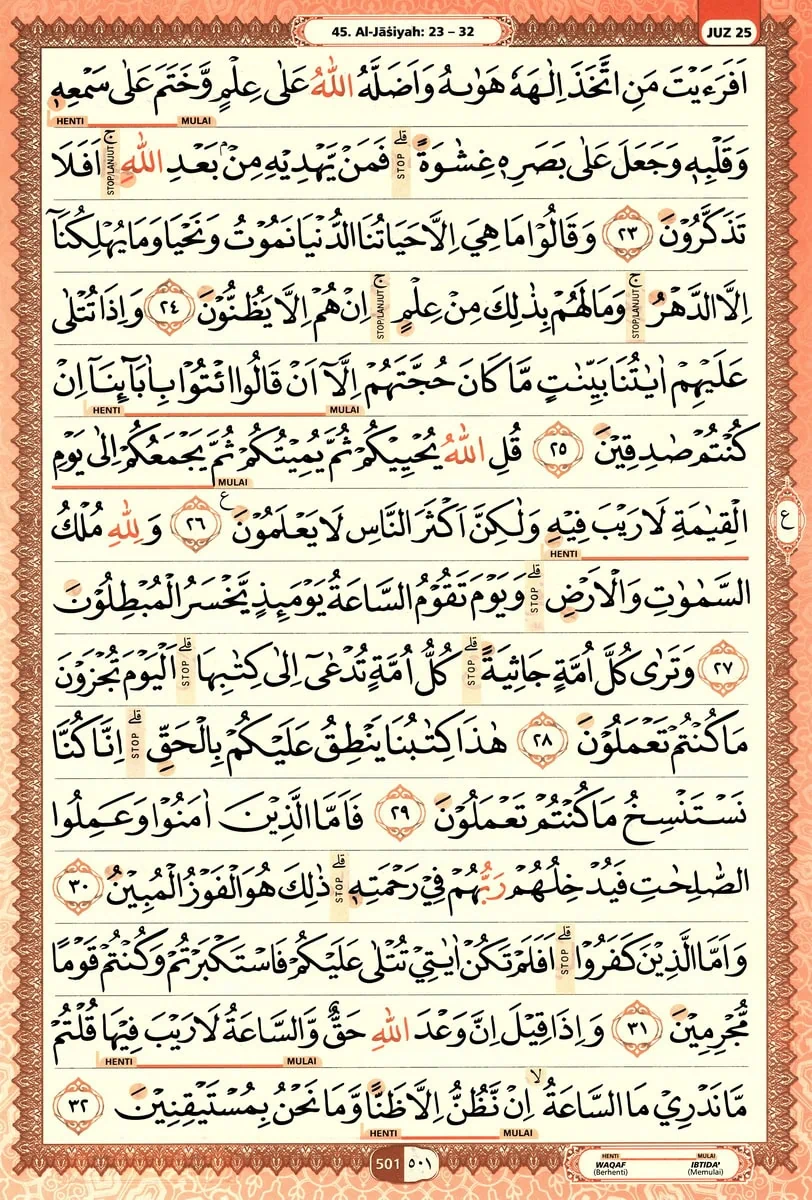 45. Al-Jāṡiyah: 23 – 32
JUZ 25
اَفَرَءَيْتَ مَنِ اتَّخَذَ اِلٰهَهٗ هَوٰىهُ وَاَضَلَّهُ اللّٰهُ عَلٰى عِلْمٍ وَّخَتَمَ عَلٰى سَمْعِهٖ
HENTI MULAI
وَقَلْبِهٖ وَجَعَلَ عَلٰى بَصَرِهٖ غِشٰوَةًۗ STOP فَمَنْ يَّهْدِيْهِ مِنْۢ بَعْدِ اللّٰهِۚ STOP/LANJUT اَفَلَا
تَذَكَّرُوْنَ ٢٣ وَقَالُوْا مَا هِيَ اِلَّا حَيَاتُنَا الدُّنْيَا نَمُوْتُ وَنَحْيَا وَمَا يُهْلِكُنَآ
اِلَّا الدَّهْرُۚ STOP/LANJUT وَمَا لَهُمْ بِذٰلِكَ مِنْ عِلْمٍۚ STOP/LANJUT اِنْ هُمْ اِلَّا يَظُنُّوْنَ ٢٤ وَاِذَا تُتْلٰى
عَلَيْهِمْ اٰيٰتُنَا بَيِّنٰتٍ مَّا كَانَ حُجَّتَهُمْ اِلَّآ اَنْ قَالُوا ائْتُوْا بِاٰبَاۤىِٕنَآ اِنْ
HENTI MULAI
كُنْتُمْ صٰدِقِيْنَ ٢٥ قُلِ اللّٰهُ يُحْيِيْكُمْ ثُمَّ يُمِيْتُكُمْ ثُمَّ يَجْمَعُكُمْ اِلٰى يَوْمِ
MULAI
الْقِيٰمَةِ لَارَيْبَ فِيْهِ وَلٰكِنَّ اَكْثَرَ النَّاسِ لَا يَعْلَمُوْنَ ࣖ ٢٦ وَلِلّٰهِ مُلْكُ
ع
HENTI
السَّمٰوٰتِ وَالْاَرْضِۗ STOP وَيَوْمَ تَقُوْمُ السَّاعَةُ يَوْمَىِٕذٍ يَّخْسَرُ الْمُبْطِلُوْنَ
٢٧ وَتَرٰى كُلَّ اُمَّةٍ جَاثِيَةًۗ STOP كُلُّ اُمَّةٍ تُدْعٰٓى اِلٰى كِتٰبِهَاۗ STOP اَلْيَوْمَ تُجْزَوْنَ
مَا كُنْتُمْ تَعْمَلُوْنَ ٢٨ هٰذَا كِتٰبُنَا يَنْطِقُ عَلَيْكُمْ بِالْحَقِّۗ STOP اِنَّا كُنَّا
نَسْتَنْسِخُ مَا كُنْتُمْ تَعْمَلُوْنَ ٢٩ فَاَمَّا الَّذِيْنَ اٰمَنُوْا وَعَمِلُوا
الصّٰلِحٰتِ فَيُدْخِلُهُمْ رَبُّهُمْ فِيْ رَحْمَتِهٖۗ STOP ذٰلِكَ هُوَ الْفَوْزُ الْمُبِيْنُ ٣٠
وَاَمَّا الَّذِيْنَ كَفَرُوْاۗ STOP اَفَلَمْ تَكُنْ اٰيٰتِيْ تُتْلٰى عَلَيْكُمْ فَاسْتَكْبَرْتُمْ وَكُنْتُمْ قَوْمًا
مُّجْرِمِيْنَ ٣١ وَاِذَا قِيْلَ اِنَّ وَعْدَ اللّٰهِ حَقٌّ وَّالسَّاعَةُ لَا رَيْبَ فِيْهَا قُلْتُمْ
HENTI MULAI
مَّا نَدْرِيْ مَا السَّاعَةُۙ اِنْ نَّظُنُّ اِلَّا ظَنًّا وَّمَا نَحْنُ بِمُسْتَيْقِنِيْنَ ٣٢
HENTI MULAI
501 ٥٠١
HENTI MULAI
WAQAF IBTIDA'
(Berhenti) (Memulai)